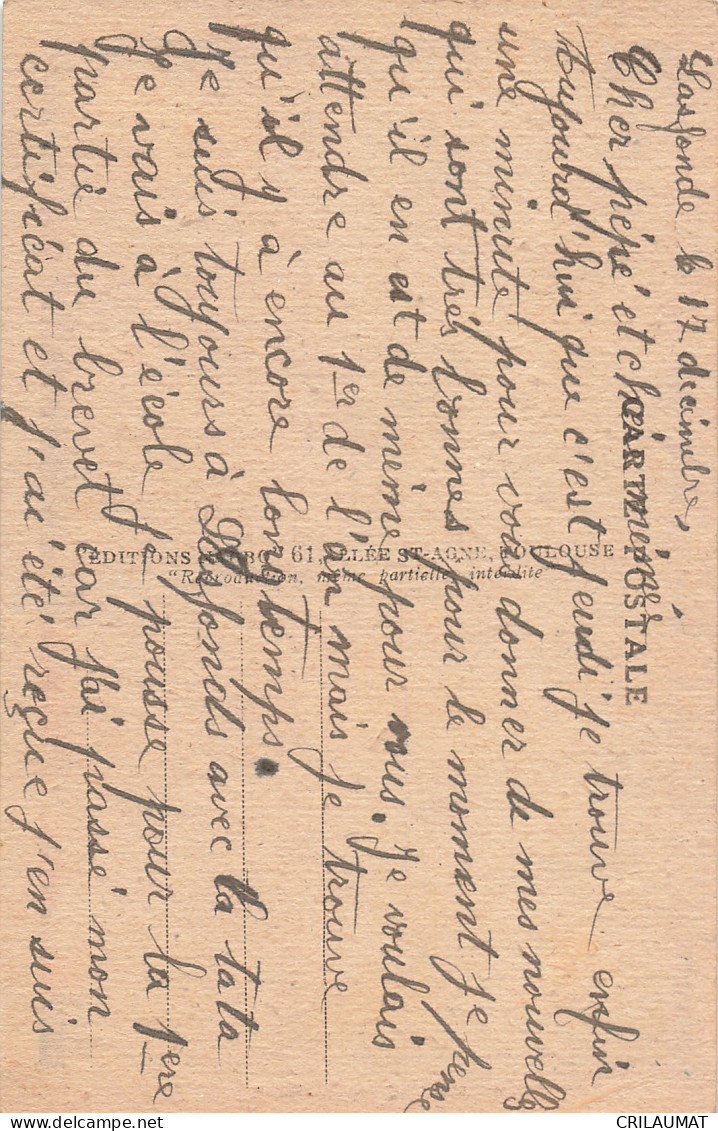 Lasfonds le 17 décembre,
CARTE POSTALE
Cher pépé et chère mémé
Aujourd'hui que c'est jeudi je trouve enfin
une minute pour vous donner de mes nouvelles
qui sont très bonnes pour le moment je pense
qu'il en est de même pour vous. Je voulais
attendre au 1er de l'an mais je trouve
qu'il y à encore longtemps.
Je suis toujours à Lasfonds avec la tata
Je vais à l'école Je pousse pour la 1ere
partie du brevet car j'ai passé mon
certificat et j'ai été reçue j'en suis
EDITIONS 61, ALLÉE ST-AGNE, TOULOUSE
"Reproduction, même partielle, interdite"
CRILAUMAT